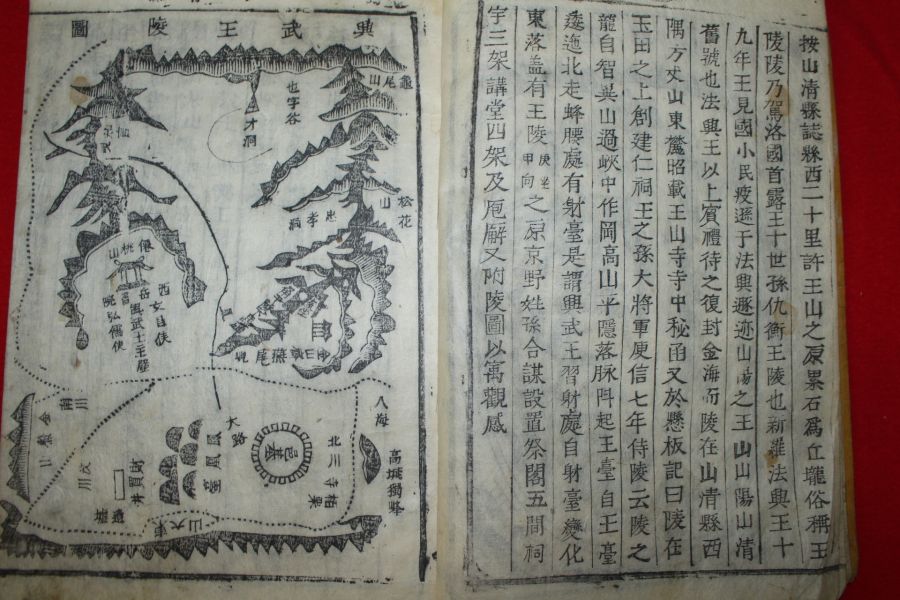 按山清縣誌縣西二十里許王山之原累石爲丘壠俗稱王
陵陵乃駕洛國首露王十世孫仇衡王陵也新羅法興王十
九年王見國小民疲遜于法興遯迹山陽之王山山陽山清
舊號也法興王以上賓禮待之復封金海而陵在山清縣西
隅方丈山東麓昭載王山寺寺中秘函又於懸板記曰陵在
玉田之上創建仁祠王之孫大將軍庾信七年侍陵云陵之
龍自智異山過峽中作岡高山平隱落脉阧起王臺自王臺
逶迤北走蜂腰處有射臺是謂興武王習射處自射臺變化
東落盖有王陵庚坐甲向之原京野姓孫合謀設置祭閣五間祠
宇三架講堂四架及庖廨又附陵圖以寓觀感
興武王陵圖
龜尾山
也字谷
才洞
松花山
忠孝洞
仙桃山
西岳
文昌侯
興武王
弘儒侯
大路
鳳凰臺
邑基
北川
栢栗
八海
高城
金鰲山
南川
蚊川
東大山